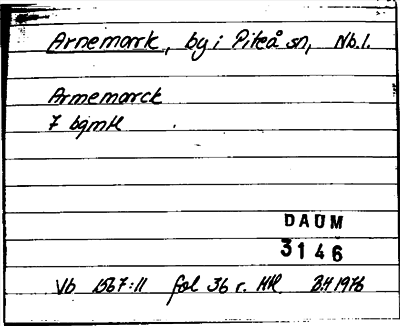 Arnemark, by i Piteå sn, Nb.l.
Arnemarck
7 bgmtl
DAUM
3146
Vb 1567:11 fol 36 r. HR 1976